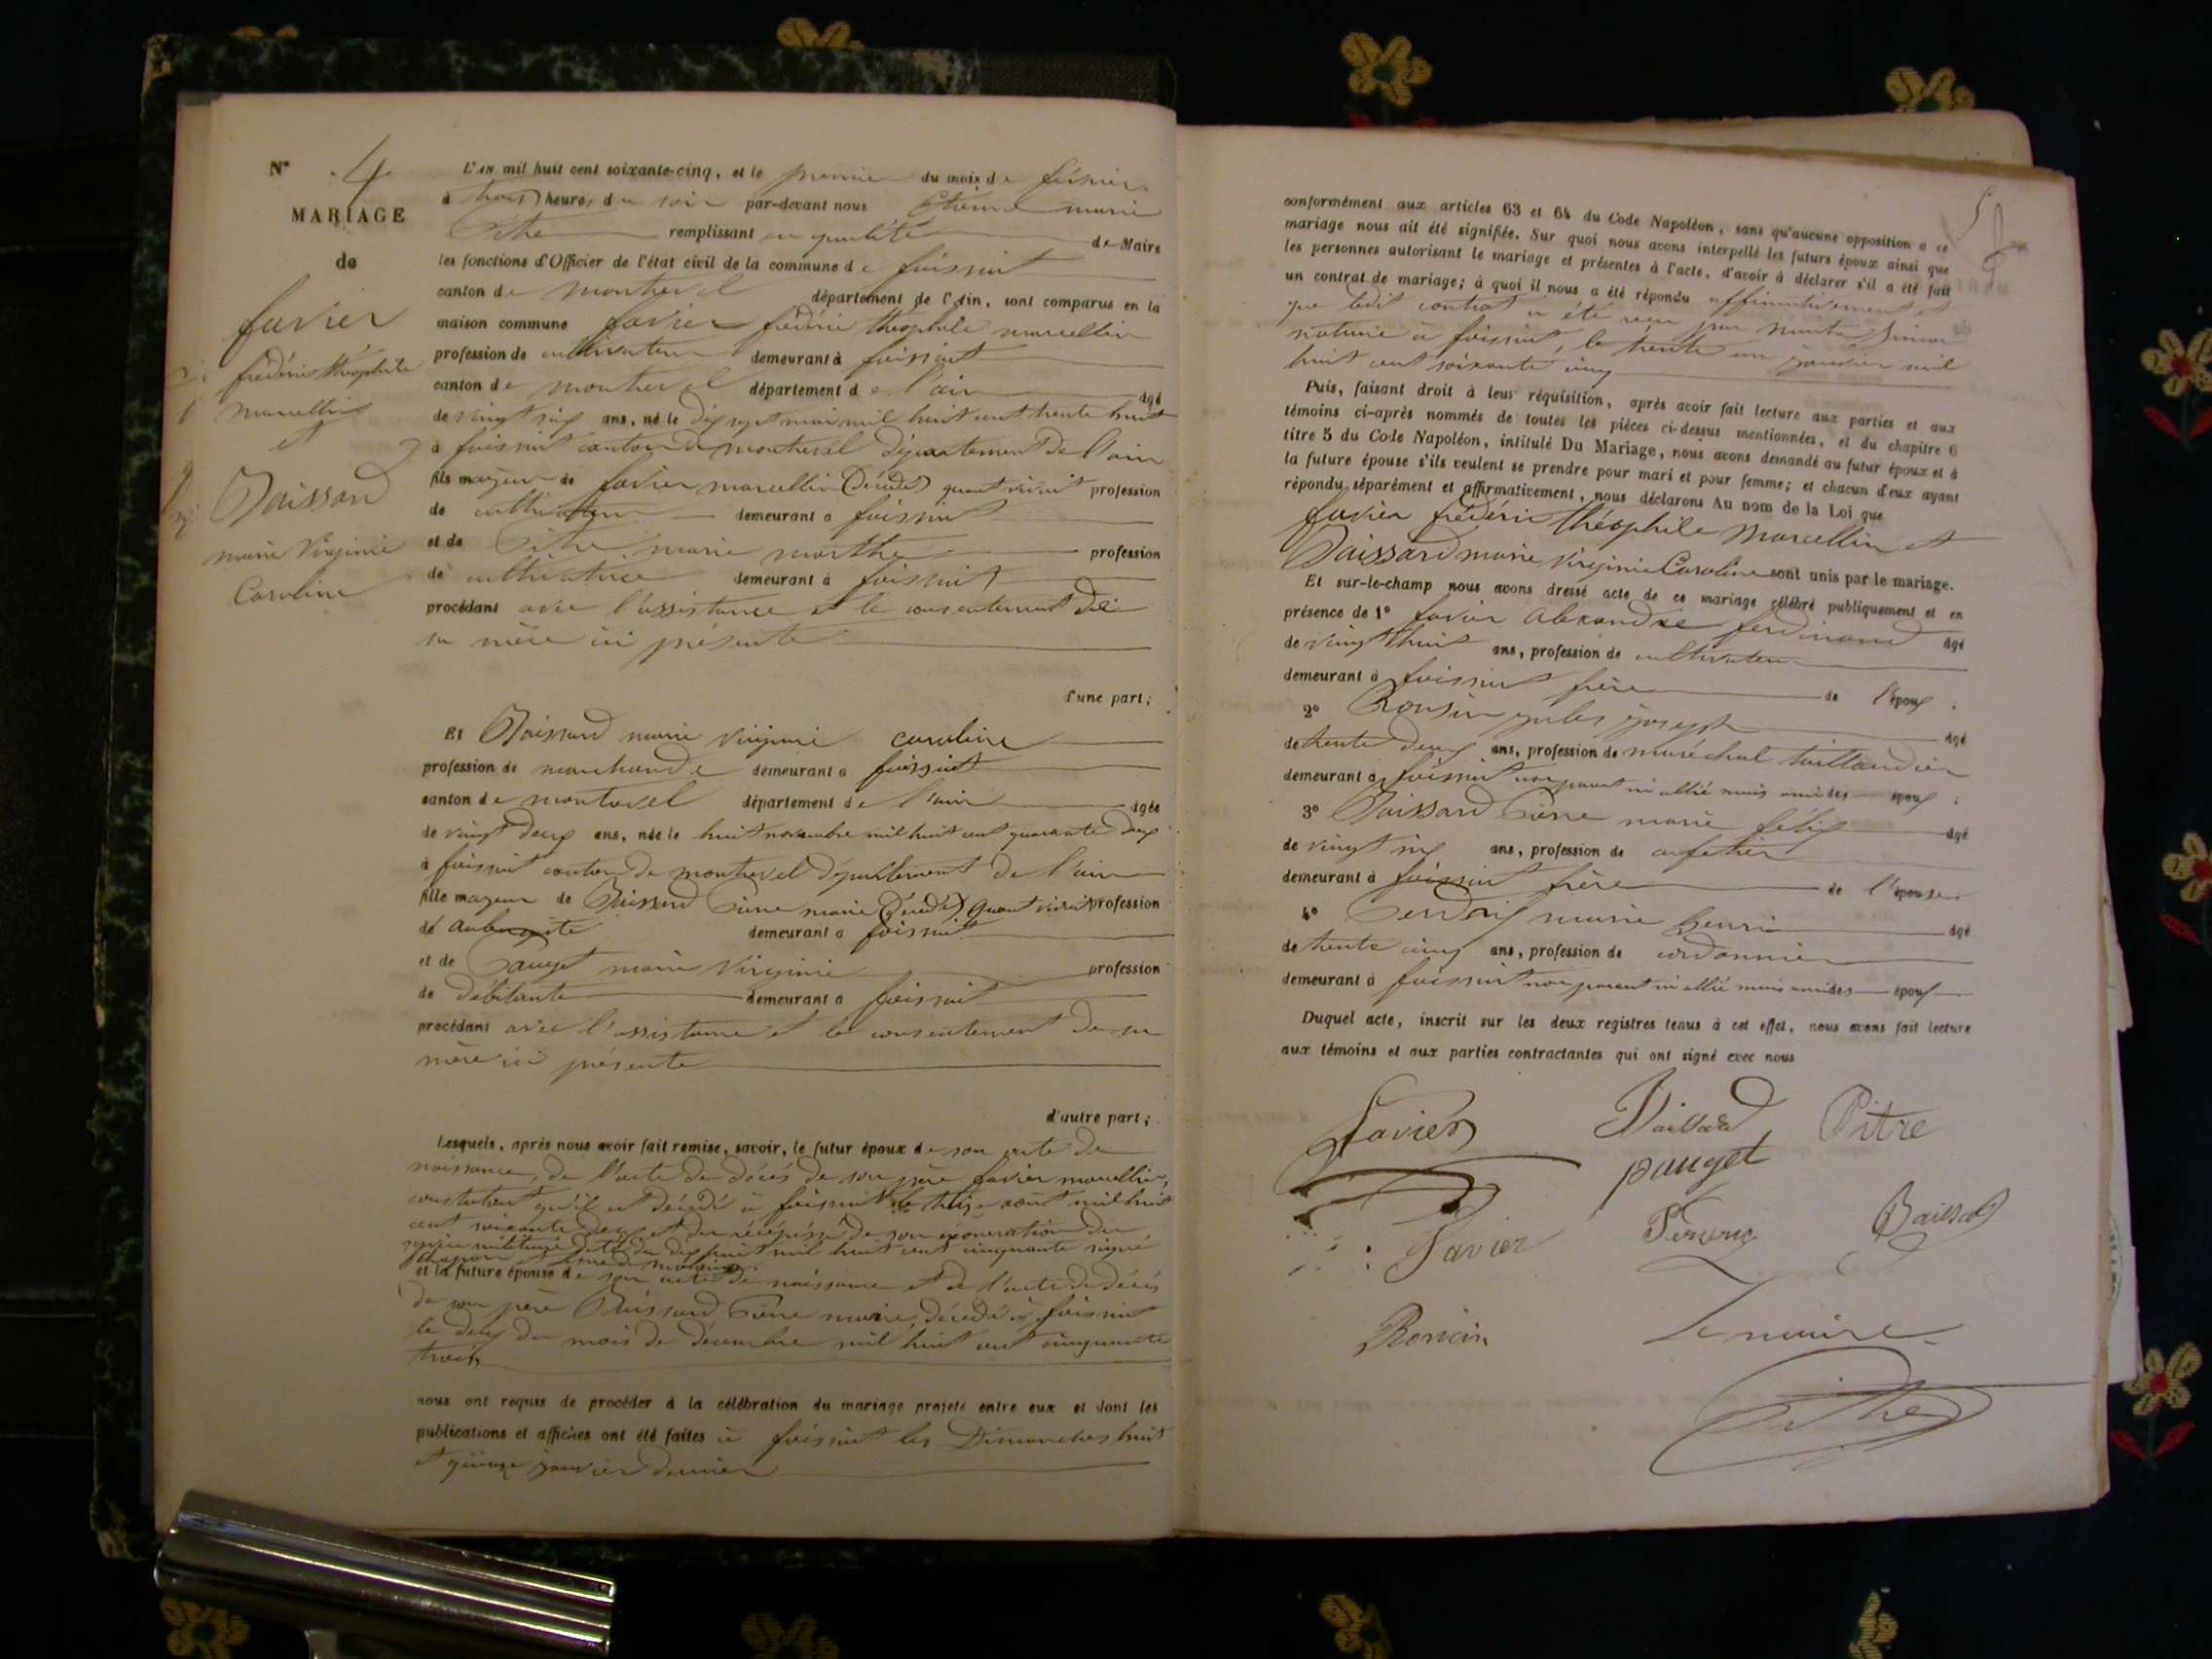 N° 4
MARIAGE
de
favier
frédéric théophile
marcellin
et
Baissard
marie Virginie
Caroline
L'AN mil huit cent soixante-cinq, et le premier du mois de février
à trois heures du soir par-devant nous Etienne marie
Pithe remplissant en qualité de Maire
les fonctions d'Officier de l'état civil de la commune de foissiat
canton de montrevel département de l'Ain, sont comparus en la
maison commune favier frédéric théophile marcellin
profession de cultivateur demeurant à foissiat
canton de montrevel département de l'ain âgé
de vingt six ans, né le dix sept mai mil huit cent trente huit
à foissiat canton de montrevel département de l'ain
fils majeur de favier marcellin décédé quant vivait profession
de cultivateur demeurant à foissiat
et de Pithe marie marthe profession
de cultivatrice demeurant à foissiat
procédant avec l'assistance et le consentement de
sa mère ici présente
d'une part;
Et Baissard marie virginie caroline
profession de marchande demeurant à foissiat
canton de montrevel département de l'ain âgée
de vingt deux ans, née le huit novembre mil huit cent quarante deux
à foissiat canton de montrevel département de l'ain
fille majeur de Baissard Pierre marie décédé quant vivait profession
de aubergiste demeurant à foissiat
et de Pauget marie Virginie profession
de débitante demeurant à foissiat
procédant avec l'assistance et le consentement de sa
mère ici présente
d'autre part;
Lesquels, après nous avoir fait remise, savoir, le futur époux de son acte de
naissance, de l'acte de décès de son père favier marcellin,
constatant qu'il est décédé à foissiat le treize août mil huit
cent soixante deux et du récépissé de son exonération du
service militaire du dix huit mil huit cent cinquante signé
et la future épouse de son acte de naissance et de l'acte de décès
de son père Baissard Pierre marie, décédé à foissiat
le deux du mois de décembre mil huit cent cinquante
trois,
nous ont requis de procéder à la célébration du mariage projeté entre eux et dont les
publications et affiches ont été faites à foissiat les Dimanches huit
et quinze janvier dernier
5
conformément aux articles 63 et 64 du Code Napoléon, sans qu'aucune opposition a ce
mariage nous ait été signifiée. Sur quoi nous avons interpellé les futurs époux ainsi que
les personnes autorisant le mariage et présentes à l'acte, d'avoir à déclarer s'il a été fait
un contrat de mariage; à quoi il nous a été répondu affirmativement et
que ledit contrat a été reçu par
notaire à foissiat, le trente un janvier mil
huit cent soixante cinq
Puis, faisant droit à leur réquisition, après avoir fait lecture aux parties et aux
témoins ci-après nommés de toutes les pièces ci-dessus mentionnées, et du chapitre 6
titre 5 du Code Napoléon, intitulé Du Mariage, nous avons demandé au futur époux et à
la future épouse s'ils veulent se prendre pour mari et pour femme; et chacun d'eux ayant
répondu séparément et affirmativement, nous déclarons Au nom de la Loi que
favier frédéric théophile Marcellin et
Baissard marie Virginie Caroline sont unis par le mariage.
Et sur-le-champ nous avons dressé acte de ce mariage célébré publiquement et en
présence de 1° favier Alexandre ferdinand âgé
de vingt huit ans, profession de cultivateur
demeurant à foissiat frère de l'époux;
2° Ronsin jules joseph âgé
de trente deux ans, profession de maréchal taillandier
demeurant à foissiat non parent ni allié mais ami des époux;
3° Baissard Pierre marie félix âgé
de vingt six ans, profession de cafetier
demeurant à foissiat frère de l'épouse
4° marie henri âgé
de trente cinq ans, profession de cordonnier
demeurant à foissiat non parent ni allié mais ami des époux
Duquel acte, inscrit sur les deux registres tenus à cet effet, nous avons fait lecture
aux témoins et aux parties contractantes qui ont signé avec nous
favier Baissard Pitre
pauget
favier Baissard
Ronsin Le maire
Pithe